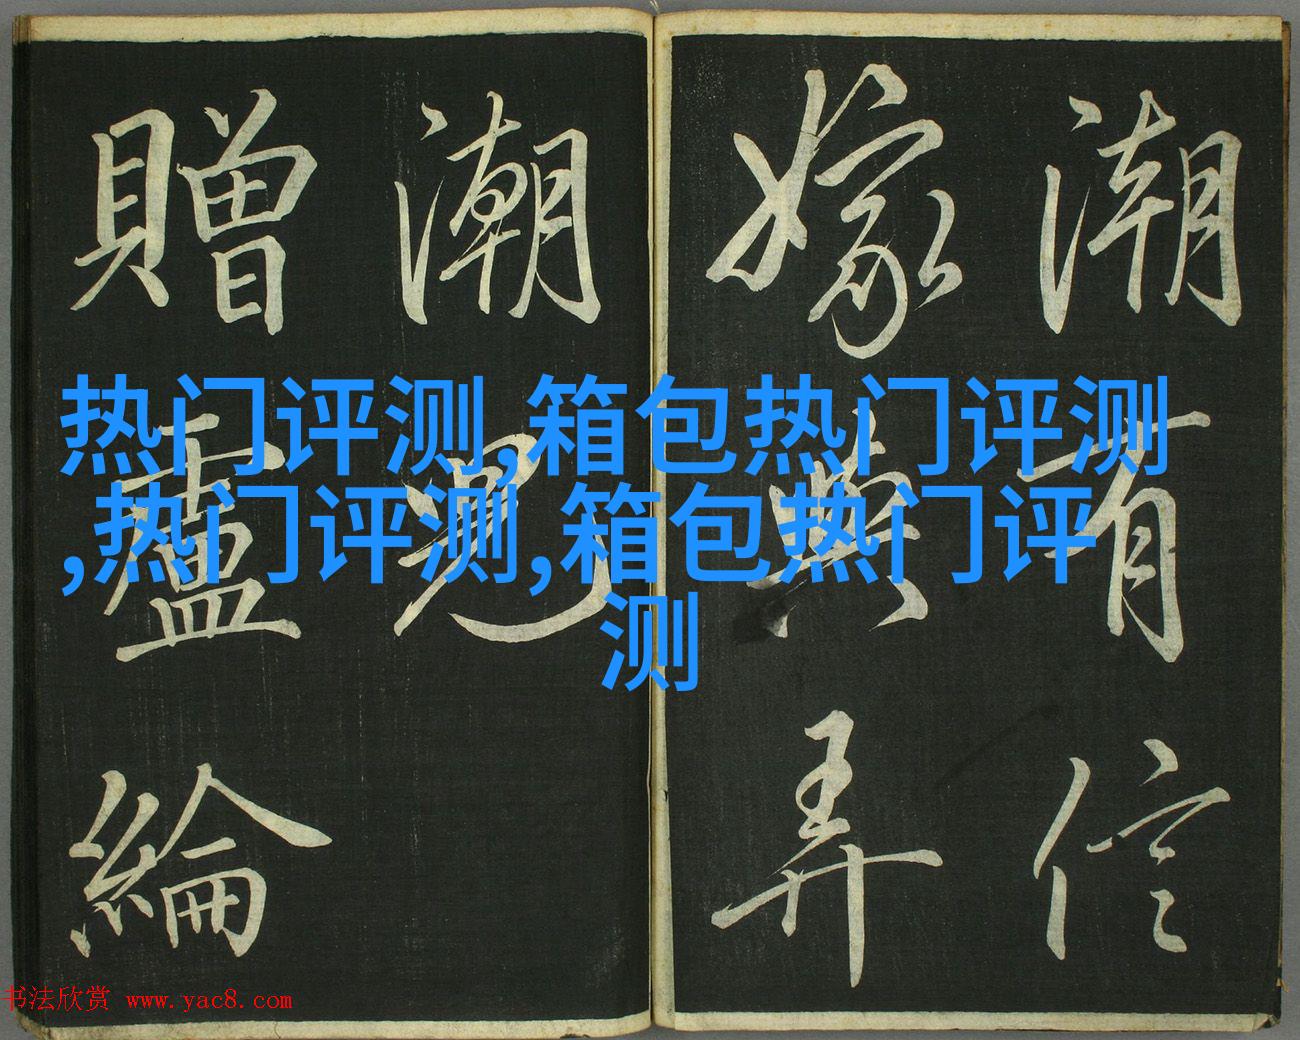 潮有信
嫁與弄
潮兒
贈盧綸
热门评测,箱包热门评测
,热门评测,箱包热门评
测
书法欣赏 www.yac8.com